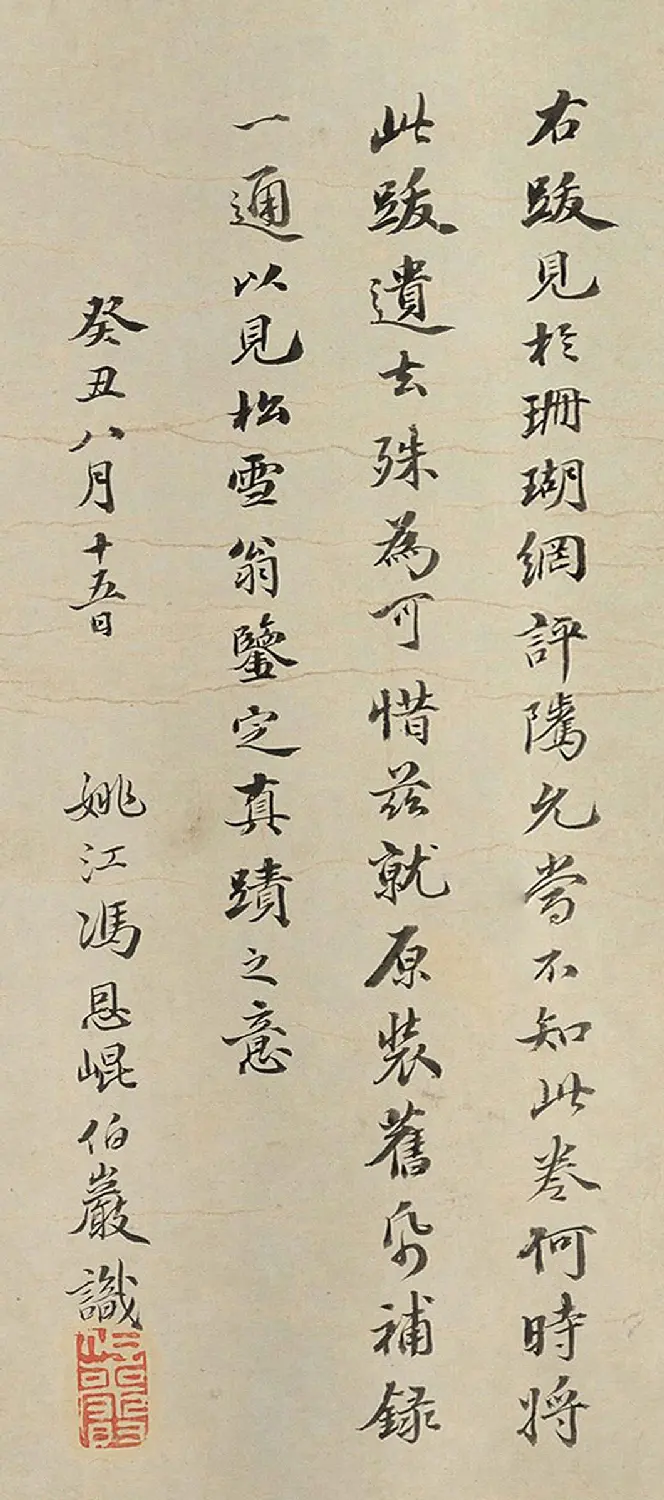 右跋見於珊瑚網評隲允當不知此卷何時將
此跋遺去殊為可惜茲就原裝舊帋補錄
一通以見松雪翁鑒定真蹟之意
癸丑八月十五日 姚江馮恩崐伯巖識